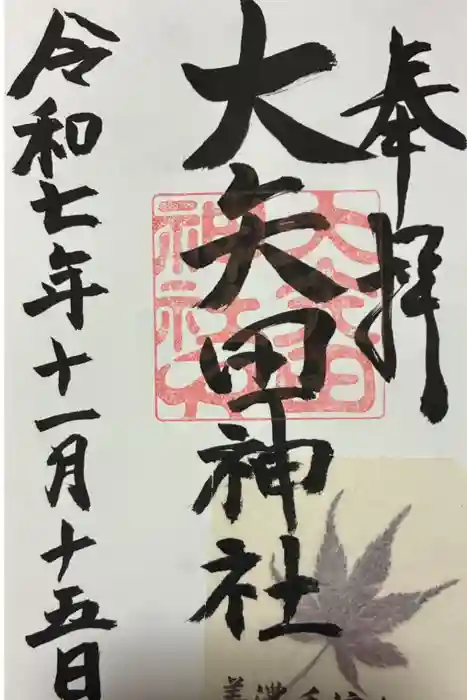 奉拝
大矢田神社
令和七年十一月十五日
大矢田
神社
美濃